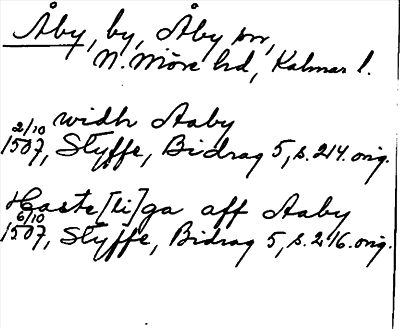 Åby, by, Åby sn,
N. Möre hd, Kalmar l.
widh Aaby
2/10 1507, Styffe, Bidrag 5, s. 214. orig.
Haste[li]ga aff Aaby
6/10 1507, Styffe, Bidrag 5, s. 216. orig.